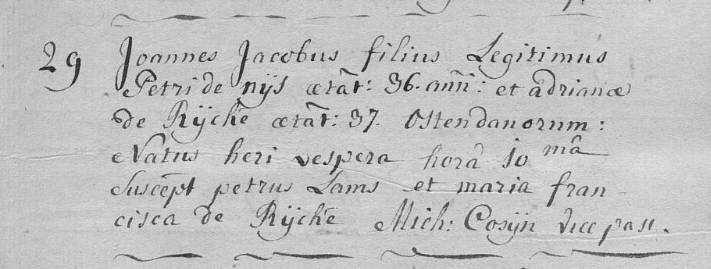 29 Joannes Jacobus filius Legitimus
Petri de nijs ætāt: 36. anñ: et adrianæ
de Rÿcke ætāt: 37. Ostendanorum:
Natus heri vespera horâ 10 mâ
Suscept petrus Lams et maria fran-
cisca de Rÿcke Mich: Cosÿn vice past.